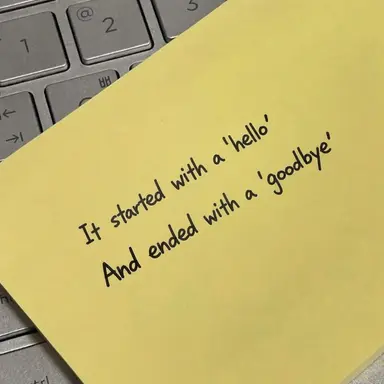 @
1
2
3
ㅃ
ㅂ
It started with a 'hello'
And ended with a 'goodbye'